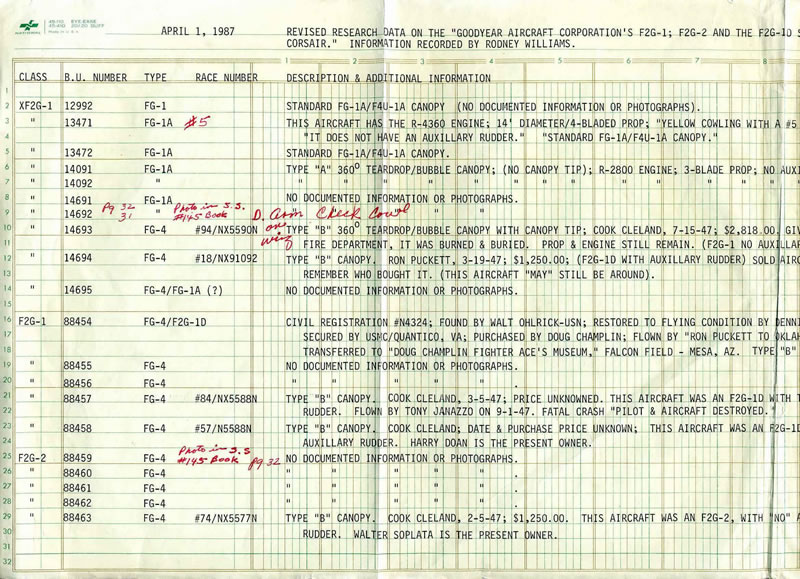 NATIONAL 45-110 EYE-EASE
45-410 20/20 BUFF
Made in U.S.A.
APRIL 1, 1987 REVISED RESEARCH DATA ON THE "GOODYEAR AIRCRAFT CORPORATION'S F2G-1; F2G-2 AND THE F2G-1D S
CORSAIR." INFORMATION RECORDED BY RODNEY WILLIAMS.
1 2 3 4 5 6 7 8
CLASS B.U. NUMBER TYPE RACE NUMBER DESCRIPTION & ADDITIONAL INFORMATION
1
2 XF2G-1 12992 FG-1 STANDARD FG-1A/F4U-1A CANOPY (NO DOCUMENTED INFORMATION OR PHOTOGRAPHS).
3 " 13471 FG-1A #5 THIS AIRCRAFT HAS THE R-4360 ENGINE; 14' DIAMETER/4-BLADED PROP; "YELLOW COWLING WITH A #5
4 "IT DOES NOT HAVE AN AUXILLARY RUDDER." "STANDARD FG-1A/F4U-1A CANOPY."
5 " 13472 FG-1A STANDARD FG-1A/F4U-1A CANOPY.
6 " 14091 FG-1A TYPE "A" 360° TEARDROP/BUBBLE CANOPY; (NO CANOPY TIP); R-2800 ENGINE; 3-BLADE PROP; NO AUXI
7 " 14092 " " " " " " " "
8 " 14691 FG-1A NO DOCUMENTED INFORMATION OR PHOTOGRAPHS.
9 " 14692 Pg 32 31 " Photo in S.S. #145 Book D. Arm Check Cowl " " " "
10 " 14693 FG-4 #94/NX5590N one wing TYPE "B" 360° TEARDROP/BUBBLE CANOPY WITH CANOPY TIP; COOK CLELAND, 7-15-47; $2,818.00. GIV
11 FIRE DEPARTMENT, IT WAS BURNED & BURIED. PROP & ENGINE STILL REMAIN. (F2G-1 NO AUXILLAR
12 " 14694 FG-4 #18/NX91092 TYPE "B" CANOPY. RON PUCKETT, 3-19-47; $1,250.00; (F2G-1D WITH AUXILLARY RUDDER) SOLD AIRC
13 REMEMBER WHO BOUGHT IT. (THIS AIRCRAFT "MAY" STILL BE AROUND).
14 " 14695 FG-4/FG-1A (?) NO DOCUMENTED INFORMATION OR PHOTOGRAPHS.
15
16 F2G-1 88454 FG-4/F2G-1D CIVIL REGISTRATION #N4324; FOUND BY WALT OHLRICK-USN; RESTORED TO FLYING CONDITION BY DENNI
17 SECURED BY USMC/QUANTICO, VA; PURCHASED BY DOUG CHAMPLIN; FLOWN BY "RON PUCKETT TO OKLAH
18 TRANSFERRED TO "DOUG CHAMPLIN FIGHTER ACE'S MUSEUM," FALCON FIELD - MESA, AZ. TYPE "B"
19 " 88455 FG-4 NO DOCUMENTED INFORMATION OR PHOTOGRAPHS.
20 " 88456 FG-4 " " " " " .
21 " 88457 FG-4 #84/NX5588N TYPE "B" CANOPY. COOK CLELAND, 3-5-47; PRICE UNKNOWNED. THIS AIRCRAFT WAS AN F2G-1D WITH T
22 RUDDER. FLOWN BY TONY JANAZZO ON 9-1-47. FATAL CRASH "PILOT & AIRCRAFT DESTROYED."
23 " 88458 FG-4 #57/N5588N TYPE "B" CANOPY. COOK CLELAND; DATE & PURCHASE PRICE UNKNOWN; THIS AIRCRAFT WAS AN F2G-1D
24 AUXILLARY RUDDER. HARRY DOAN IS THE PRESENT OWNER.
25 F2G-2 88459 FG-4 Photo in S.S #145 Book pg 32 NO DOCUMENTED INFORMATION OR PHOTOGRAPHS.
26 " 88460 FG-4 " " " " .
27 " 88461 FG-4 " " " " .
28 " 88462 FG-4 " " " " .
29 " 88463 FG-4 #74/NX5577N TYPE "B" CANOPY. COOK CLELAND, 2-5-47; $1,250.00. THIS AIRCRAFT WAS AN F2G-2, WITH "NO" A
30 RUDDER. WALTER SOPLATA IS THE PRESENT OWNER.
31
32